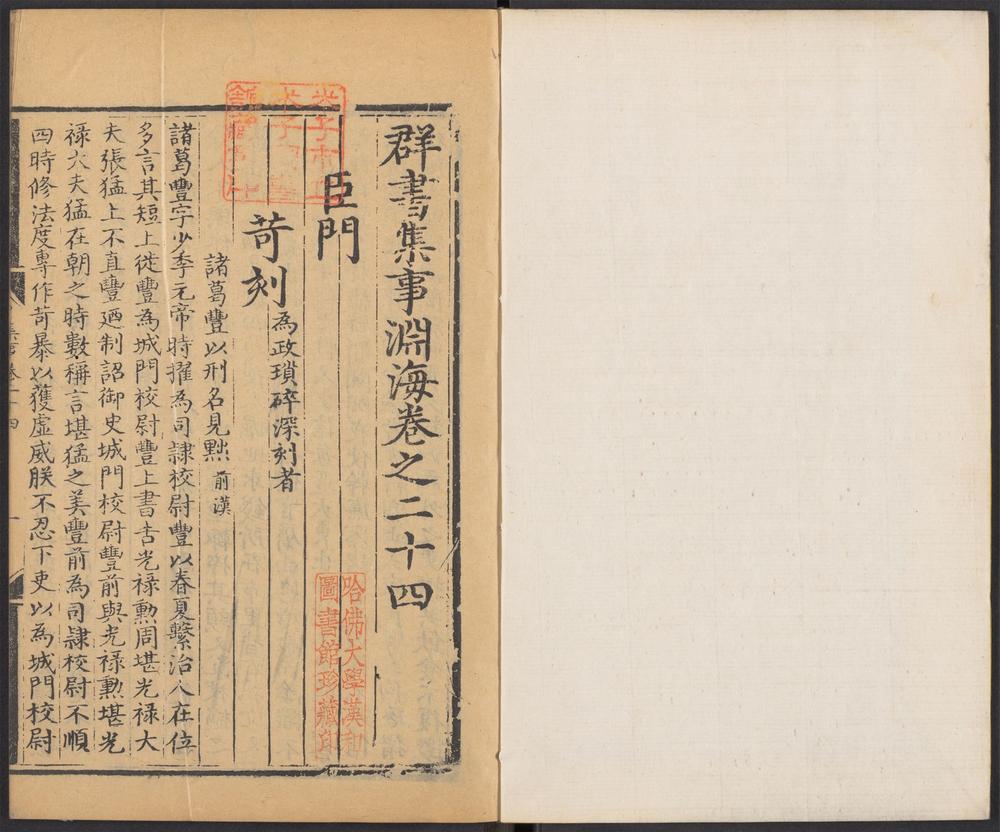 群書集事淵海卷之二十四
臣門
苛刻 為政瑣碎深刻者
諸葛豐以刑名見黜 前漢
諸葛豐字少季元帝時擢為司隷校尉豐以春夏繫治人在位
多言其短上徙豐為城門校尉豐上書吿光禄勲周堪光禄大
夫張猛上不直豐廼制詔御史城門校尉豐前與光禄勲堪光
禄大夫猛在朝之時數稱言堪猛之美豐前為司隷校尉不順
四時修法度專作苛暴以獲虛威朕不忍下吏以為城門校尉
哈佛大學漢和
圖書館珍藏印